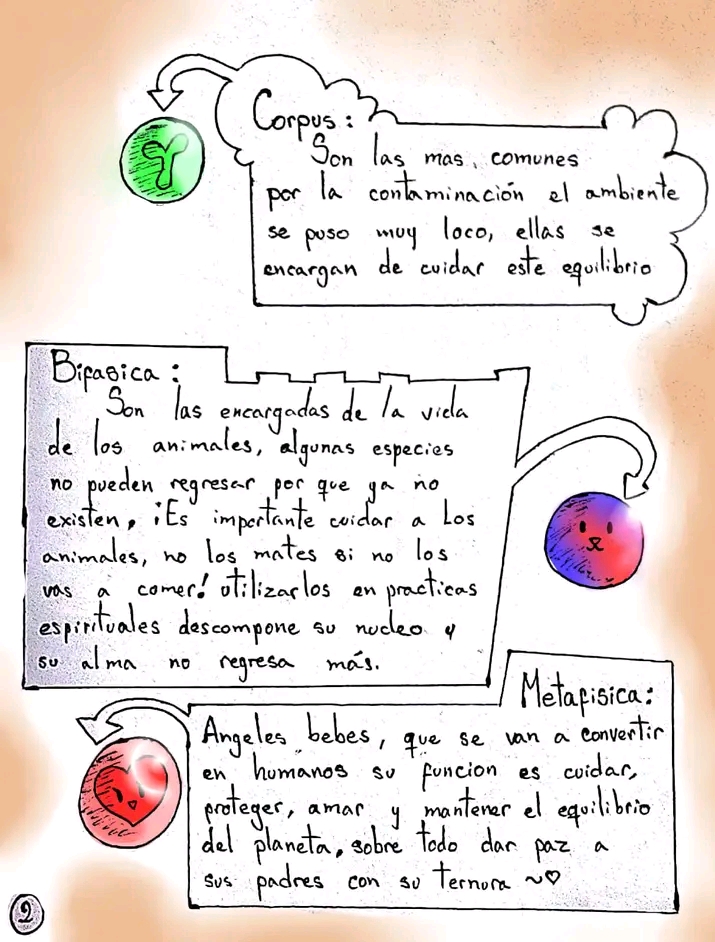 Corpus:
Son las mas comunes
por la contaminación el ambiente
se puso muy loco, ellas se
encargan de cuidar este equilibrio
Bifasica:
Son las encargadas de la vida
de los animales, algunas especies
no pueden regresar por que ya no
existen, ¡Es importante cuidar a Los
animales, no los mates si no los
vas a comer! utilizarlos en practicas
espirituales descompone su nucleo y
su alma no regresa más.
Metafisica:
Angeles bebes, que se van a convertir
en humanos su funcion es cuidar,
proteger, amar y mantener el equilibrio
del planeta, sobre todo dar paz a
sus padres con su ternura ~♡
2